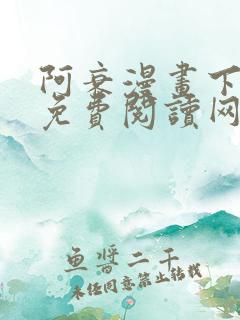 阿衰漫畫下
免費閱讀网
鱼酱二千
未经同意禁止转载